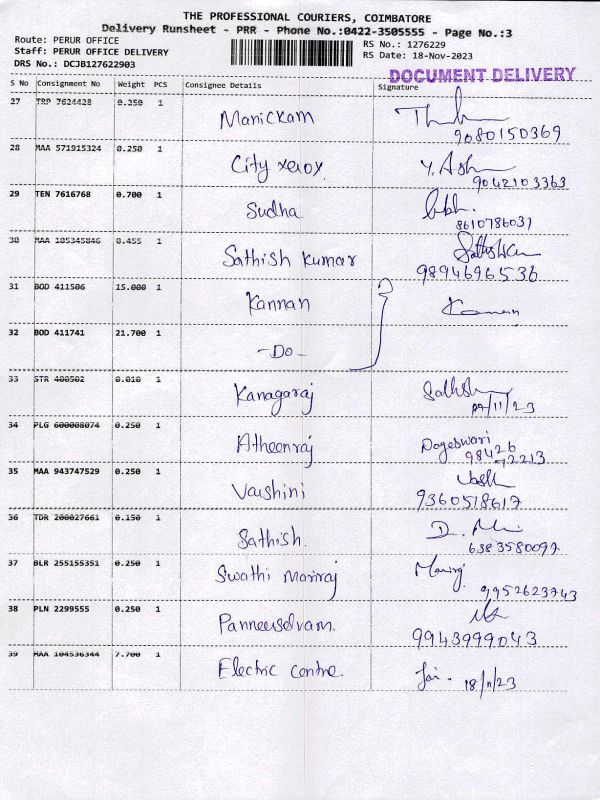 THE PROFESSIONAL COURIERS, COIMBATORE
Delivery Runsheet - PRR - Phone No.:0422-3505555 - Page No.:3
Route: PERUR OFFICE
Staff: PERUR OFFICE DELIVERY
DRS No.: DCJB127622903
RS No.: 1276229
RS Date: 18-Nov-2023
DOCUMENT DELIVERY
S No Consignment No Weight PCS Consignee Details Signature
27 TRP 7624428 0.250 1 Manickam
9080150369
28 MAA 571915324 0.250 1 City xerox Y. Ash
9042103363
29 TEN 7616768 0.700 1 Sudha
8610786031
30 MAA 105345846 0.455 1 Sathish Kumar
9894696536
31 BOD 411506 15.000 1 Kannan Kannan
32 BOD 411741 21.700 1 -Do-
33 STR 400502 0.010 1 Kanagaraj Sathish
/11/23
34 PLG 600008074 0.250 1 Atheenraj Dogeswari
98426
72213
35 MAA 943747529 0.250 1 Varshini
9360518617
36 TDR 200027661 0.150 1 Sathish.
6383580097
37 BLR 255155351 0.250 1 Swathi Mariraj
9952623743
38 PLN 2299555 0.250 1 Panneerselvam.
9943999043
39 MAA 104536344 7.700 1 Electric Centre. Jai. 18/11/23